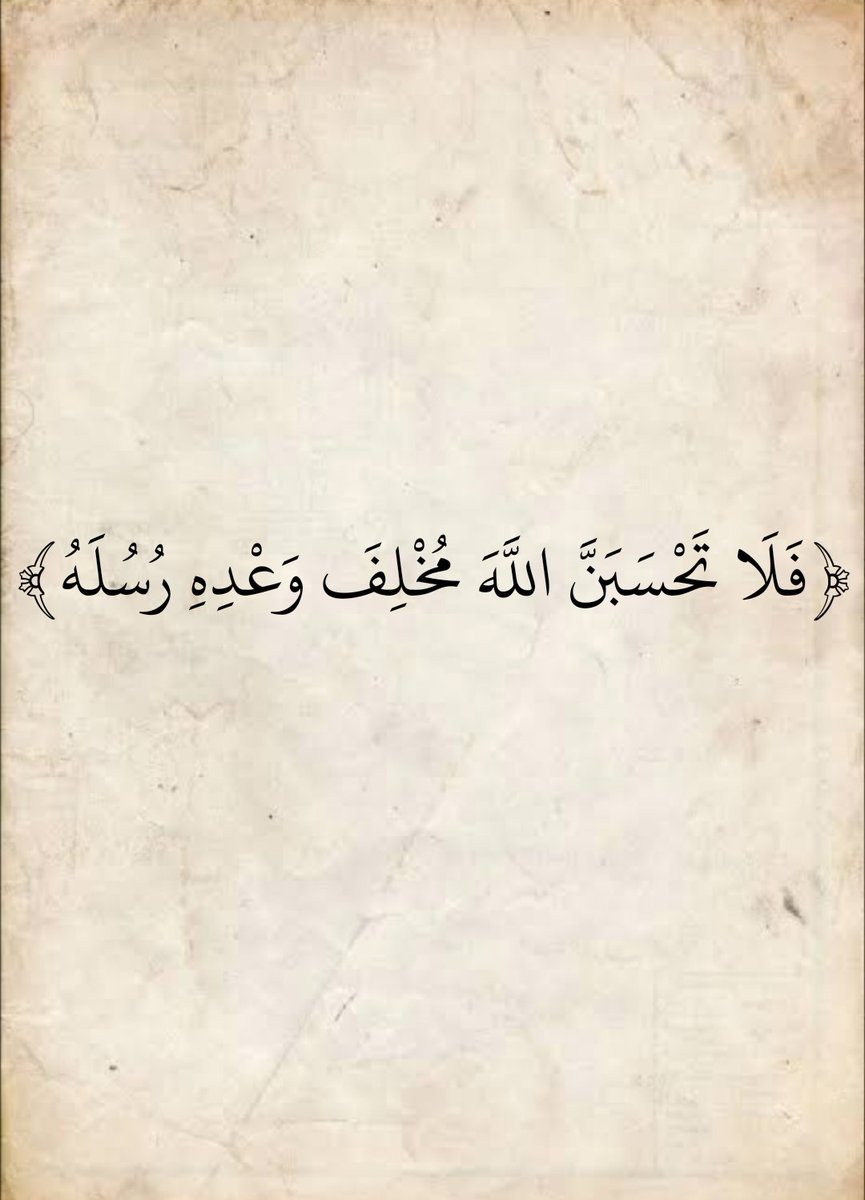 ﴿فَلَا تَحْسَبَنَّ اللَّهَ مُخْلِفَ وَعْدِهِ رُسُلَهُ﴾